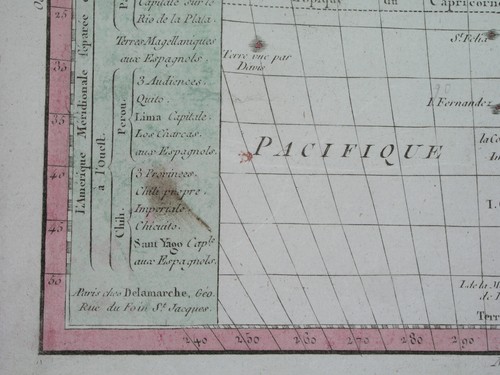 Capitale sur le
Rio de la Plata.
Terres Magellaniques
aux Espagnols.
L'Amérique Méridionale séparée
à l'Ouest.
Perou.
3 Audiences.
Quito.
Lima Capitale.
Los Charcas.
aux Espagnols.
Chili.
3 Provinces.
Chili propre.
Imperiale.
Chicuito.
Sant Yago Cap.le
aux Espagnols.
A Paris chez Delamarche, Géo.
Rue du Foin St. Jacques.
du Capricorne
St. Felix
Terre vue par
Davis
I. Fernandez
PACIFIQUE
I. de la M
Terr
35
35
40
45
50
240 250 260 270 280 290